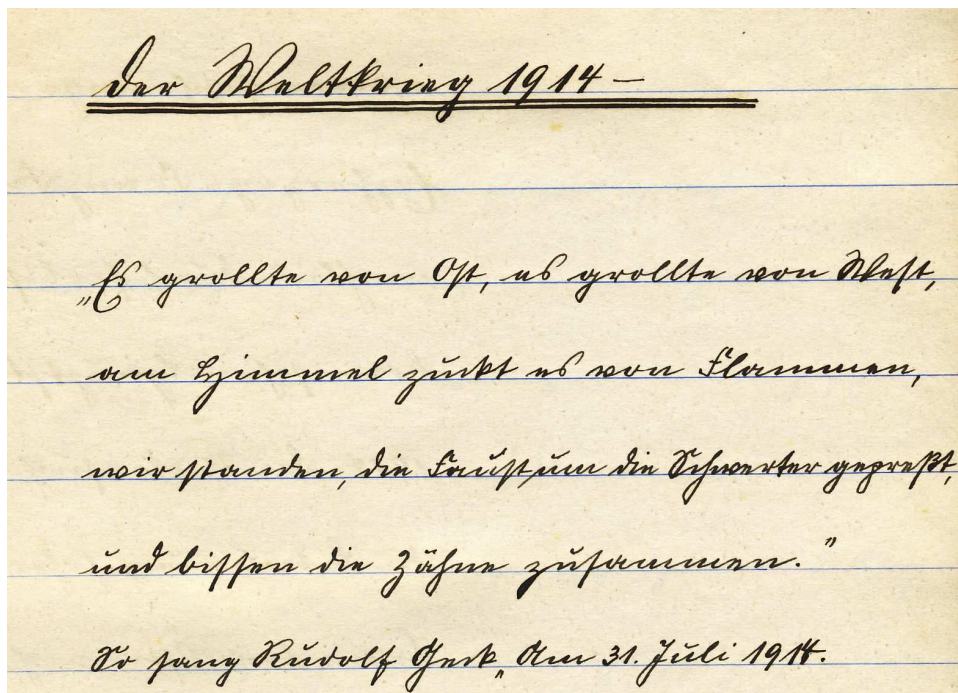 Der Weltkrieg 1914 –
„Es grollte von Ost, es grollte von West,
am Himmel zuckt es von Flammen,
wir standen, die Faust um die Schwerter gepreßt,
und bissen die Zähne zusammen.“
So sang Rudolf Geck „Am 31. Juli 1914.